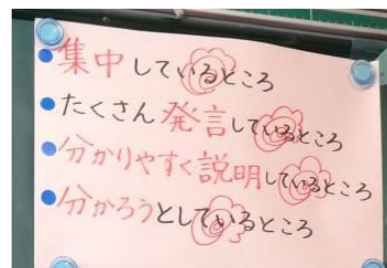 集中しているところ
たくさん発言しているところ
分かりやすく説明しているところ
分かろうとしているところ